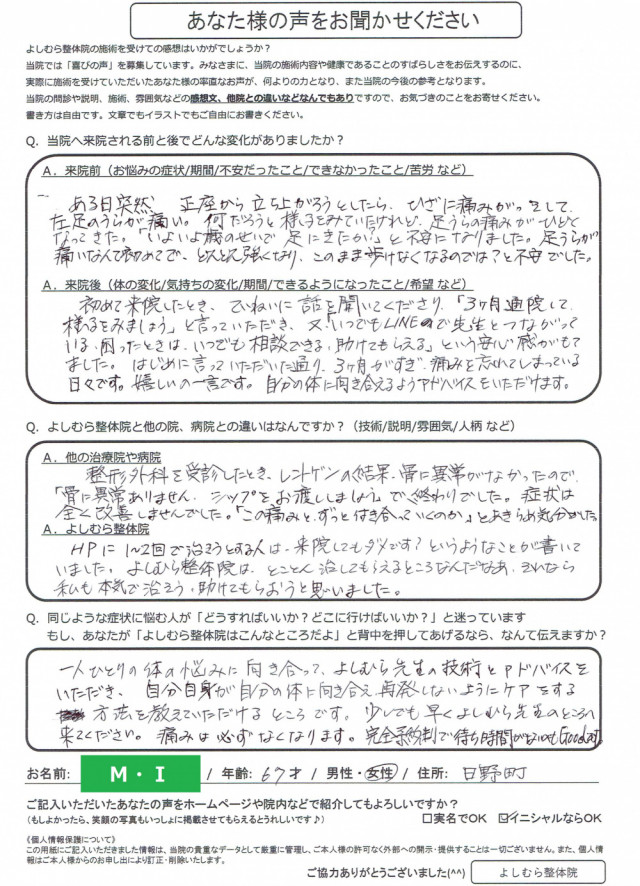 あなた様の声をお聞かせください
よしむら整体院の施術を受けての感想はいかがでしょうか？
当院では「喜びの声」を募集しています。みなさまに、当院の施術内容や健康であることのすばらしさをお伝えするのに、
実際に施術を受けていただいたあなた様の率直なお声が、何よりの力となり、また当院の今後の参考となります。
当院の問診や説明、施術、雰囲気などの感想文、他院との違いなどなんでもありですので、お気づきのことをお寄せください。
書き方は自由です。文章でもイラストでもご自由にお書きください。
Q. 当院へ来院される前と後でどんな変化がありましたか？
A. 来院前（お悩みの症状/期間/不安だったこと/できなかったこと/苦労 など）
ある日突然、正座から立ち上がろうとしたら、ひざに痛みがっをして、
左足のうらが痛い。何だろうと様子をみていたけれど、足うらの痛みがひどく
なってきた。「いよいよ歳のせいで足にきたか？」と不安になりました。足うらが
痛いなんて初めてで、どんどん強くなり、このまま歩けなくなるのでは？と不安でした。
A. 来院後（体の変化/気持ちの変化/期間/できるようになったこと/希望 など）
初めて来院したとき、ていねいに話を聞いてくださり、「3ヶ月通院して
様子をみましょう」と言っていただき、又「いつでもLINEので先生とつながって
いる、困ったときは、いつでも相談できる、助けてもらえる」という安心感がもて
ました。はじめに言っていただいた通り、3ヶ月がすぎ、痛みを忘れてしまっている
日々です。嬉しいの一言です。自分の体に向き合えるようアドバイスをいただけます。
Q. よしむら整体院と他の院、病院との違いはなんですか？（技術/説明/雰囲気/人柄 など）
A. 他の治療院や病院
整形外科を受診したとき、レントゲンの結果、骨に異常がなかったので、
「骨に異常ありません。シップをお渡ししましょう」で終わりでした。症状は
全く改善しませんでした。「この痛みと、ずっと付き合っていくのか」とあきらめ気分でした。
A. よしむら整体院
HPに1〜2回で治そうとする人は、来院してもダメです？というようなことが書いて
いました。よしむら整体院は、とことん治してもらえるところなんだなあ、それなら
私も本気で治そう、助けてもらおうと思いました。
Q. 同じような症状に悩む人が「どうすればいいか？どこに行けばいいか？」と迷っています
もし、あなたが「よしむら整体院はこんなところだよ」と背中を押してあげるなら、なんて伝えますか？
一人ひとりの体の悩みに向き合って、よしむら先生の技術とアドバイスを
いただき、自分自身が自分の体に向き合え、再発しないようにケアをする
方法を教えていただけるところです。少しでも早くよしむら先生のところへ
来てください。痛みは必ずなくなります。完全予約制で待ち時間がないのもGoodです。
お名前: M・I / 年齢: 67才 / 男性・女性 / 住所: 日野町
ご記入いただいたあなたの声をホームページや院内などで紹介してもよろしいですか？
（もしよかったら、笑顔の写真もいっしょに掲載させてもらえるとうれしいです♪） □実名でOK ☑イニシャルならOK
《個人情報保護について》
この用紙にご記入いただきました情報は、当院の貴重なデータとして厳重に管理し、ご本人様の許可なく外部への開示・提供することは一切ございません。また、個人情
報はご本人様からのお申し出により訂正・削除いたします。
ご協力ありがとうございました(^^) よしむら整体院